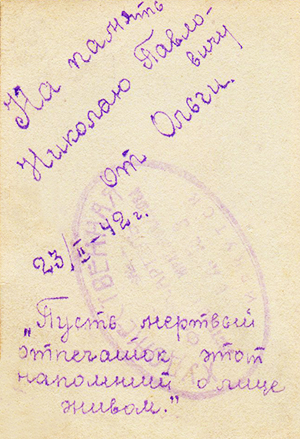 На память
Николаю Павло-
вичу
от Ольги.
23/II-42 г.
"Пусть мертвый
отпечаток этот
напомнит о лице
живом."